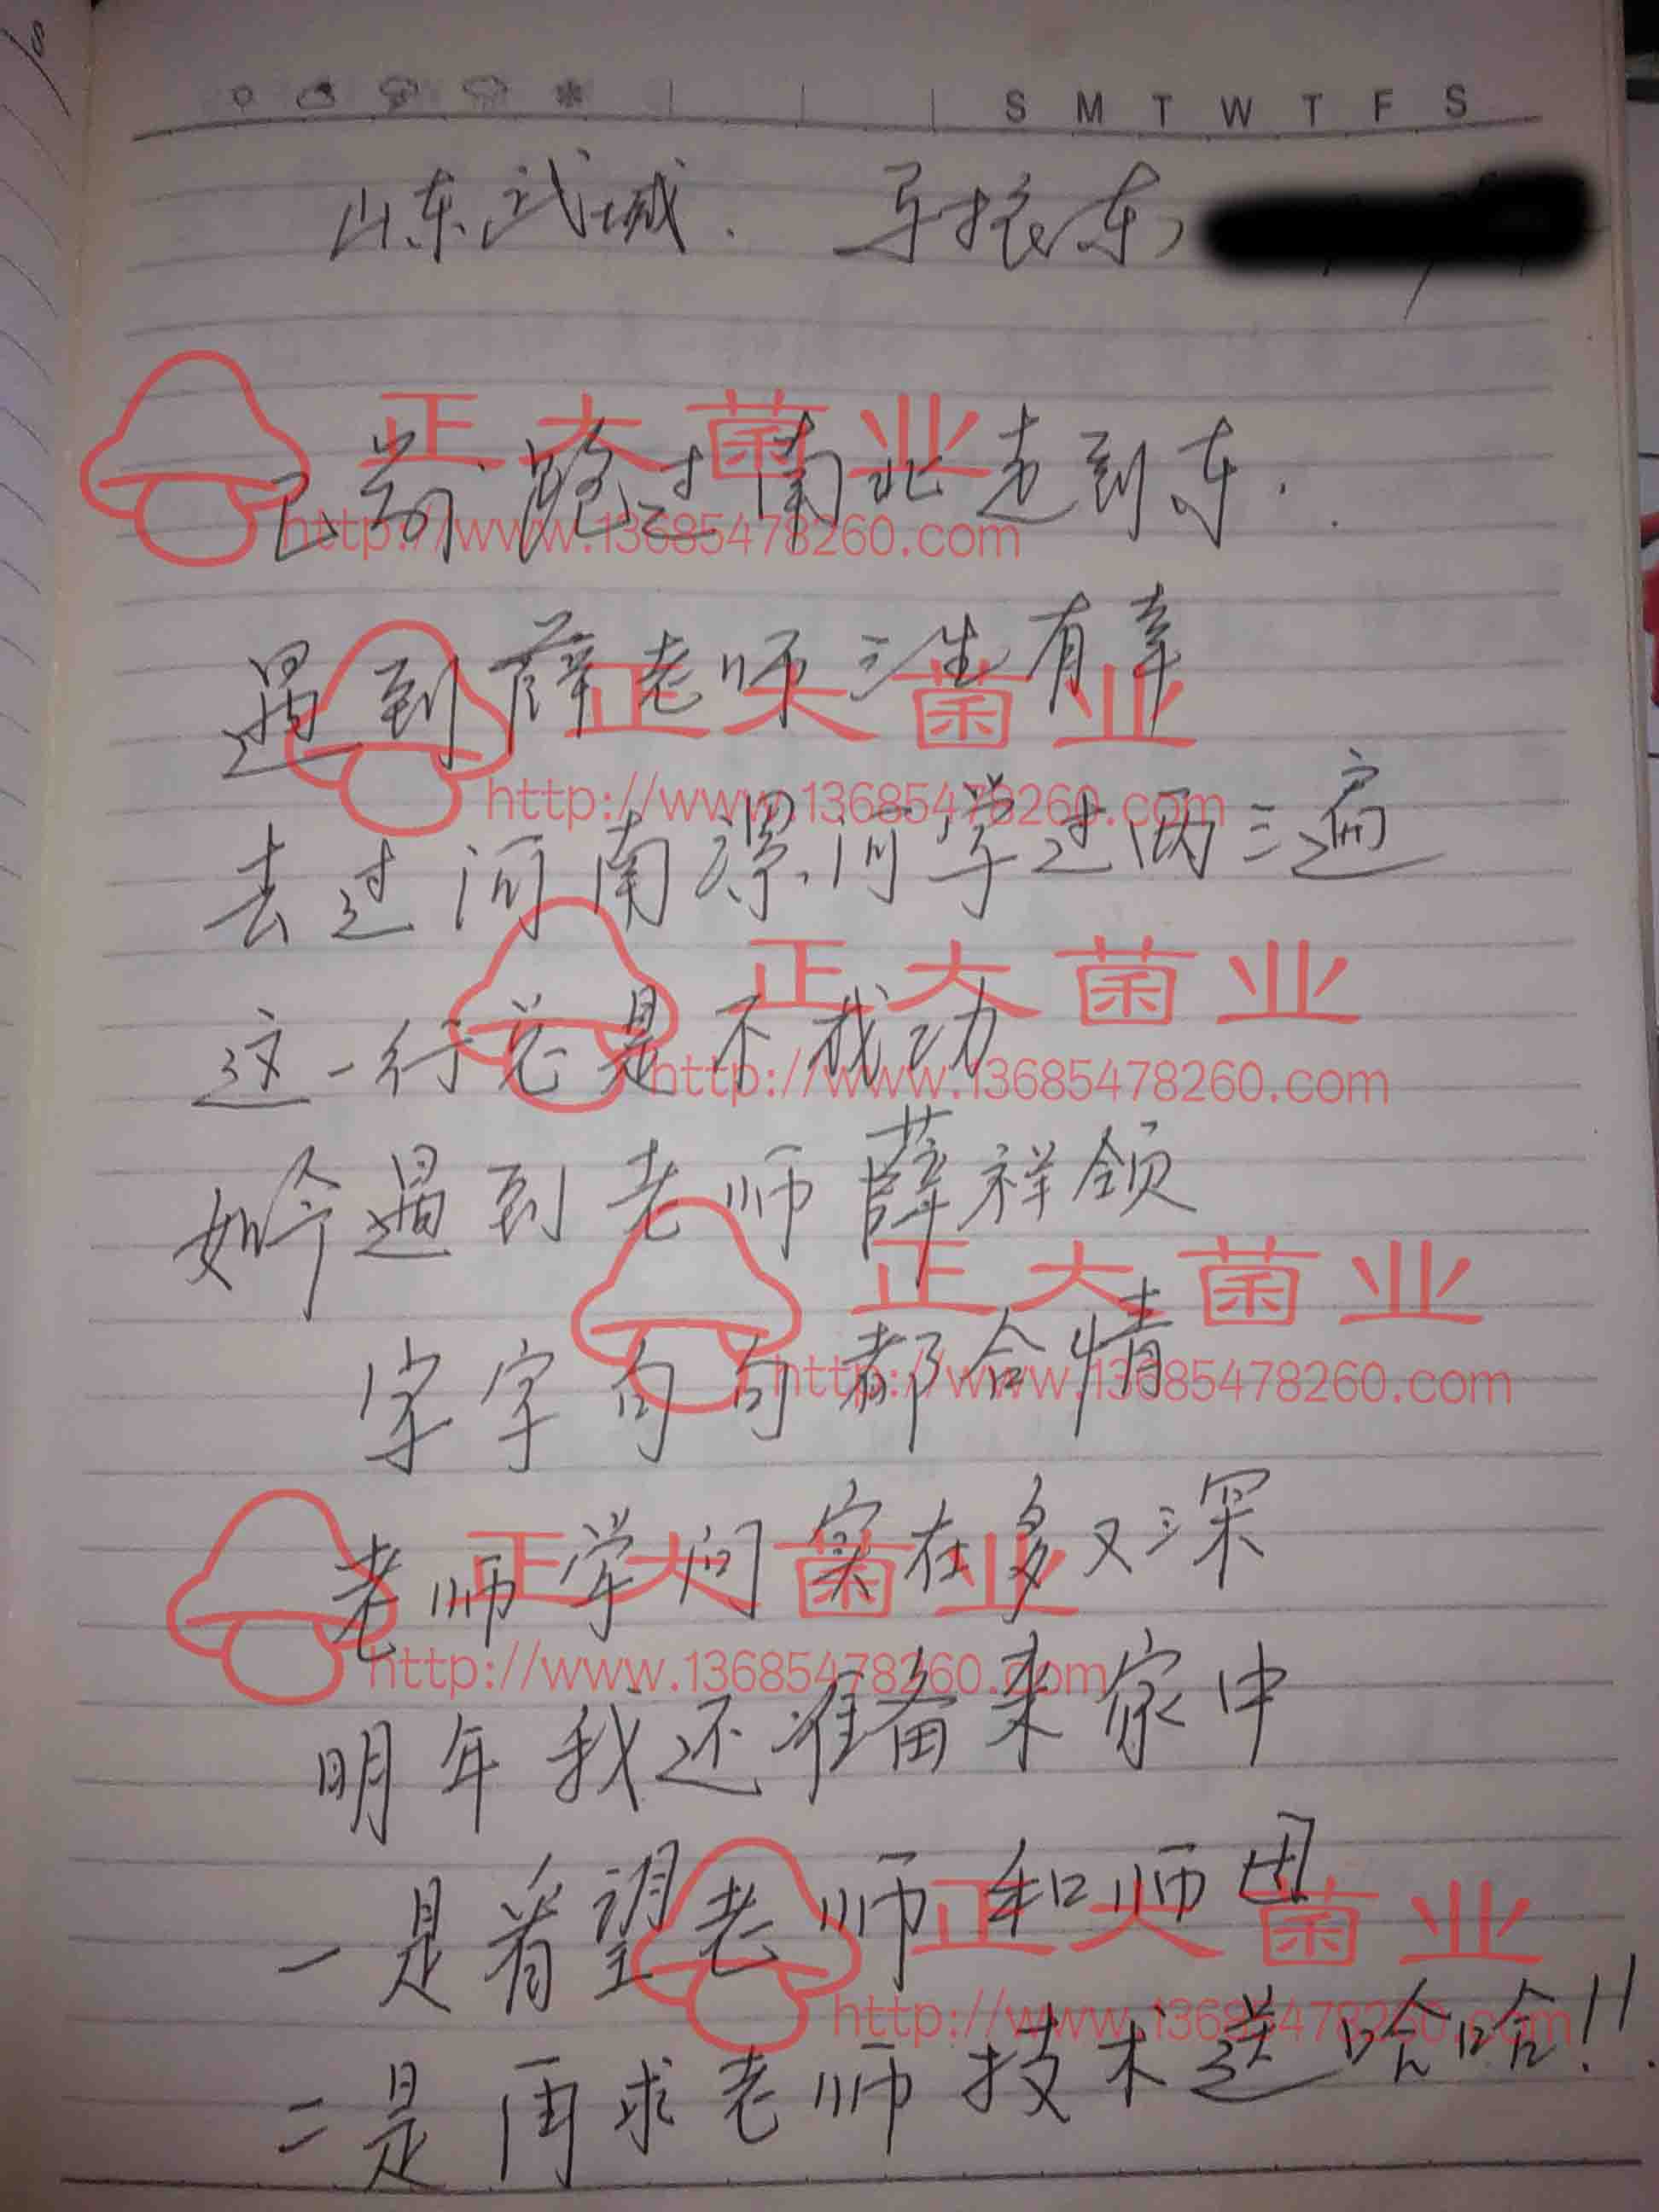 S M T W T F S
山东武城. 马振东
已前跑过南北走到东.
遇到薛老师三生有幸
去过河南漯河学过两三遍
这一行总是不成功
如今遇到老师薛祥领
字字句句都合情
老师学问实在多又深
明年我还准备来家中
一是看望老师和师母
二是再求老师技术送哈哈!!
正大菌业
http://www.13685478260.com
正大菌业
http://www.13685478260.com
正大菌业
http://www.13685478260.com
正大菌业
http://www.13685478260.com
正大菌业
http://www.13685478260.com
正大菌业
http://www.13685478260.com